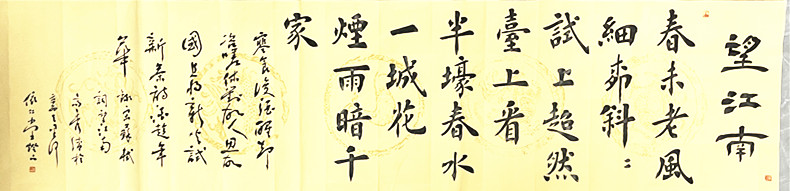 望江南
春未老風
細柳斜﹕
試上超然
臺上看
半壕春水
一城花
煙雨暗千
家
寒食後酒醒卻
咨嗟休對故人思故
國且將新火試
新茶詩酒趁年
華 錄宋蘇軾
詞望江南